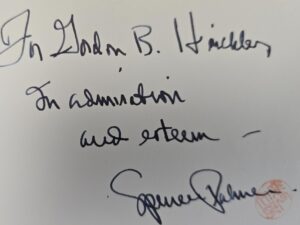 For Gordon B. Hinckley,
In admiration
and esteem —
Spencer Palmer